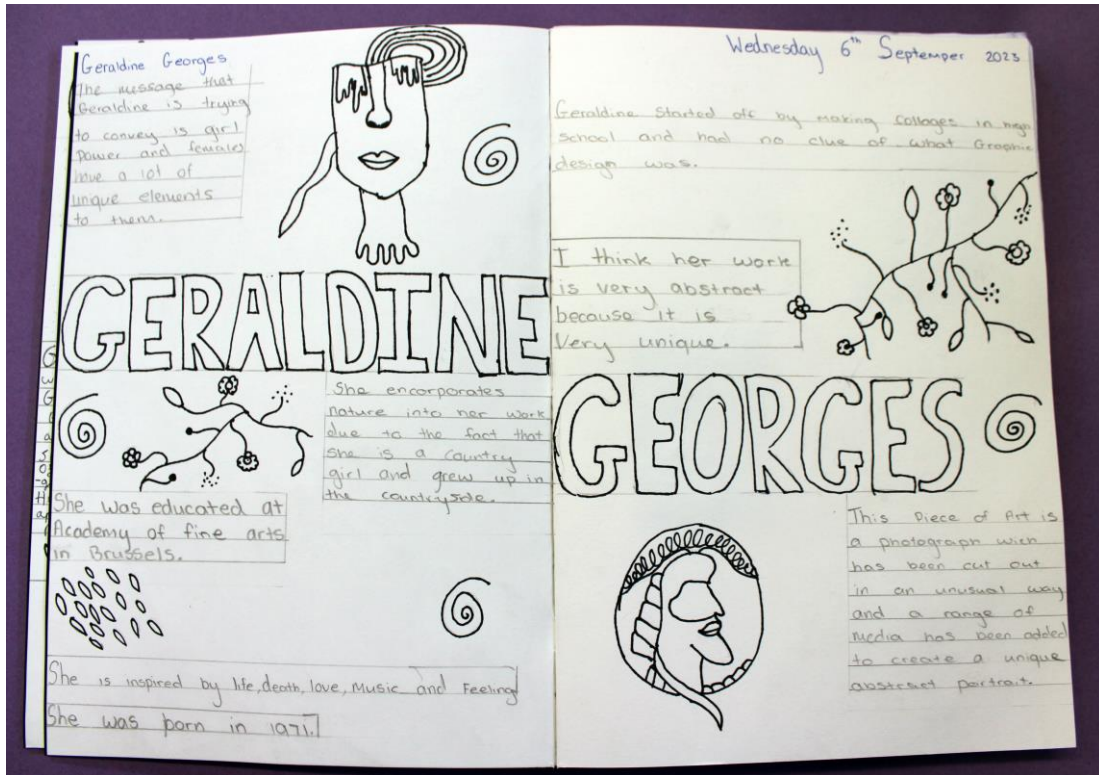 Geraldine Georges
The message that
Geraldine is trying
to convey is girl
power and females
have a lot of
unique elements
to them.
GERALDINE
She encorporates
nature into her work
due to the fact that
she is a country
girl and grew up in
the countryside.
She was educated at
Academy of fine arts
in Brussels.
She is inspired by life, death, love, Music and Feeling
She was born in 1971.
Wednesday 6th September 2023
Geraldine Started off by Making Collages in high
school and had no clue of what Graphic
design was.
I think her work
is very abstract
because it is
Very unique.
GEORGES
This Piece of Art is
a photograph wich
has been cut out
in an unusual way
and a range of
media has been added
to create a unique
abstract portrait.